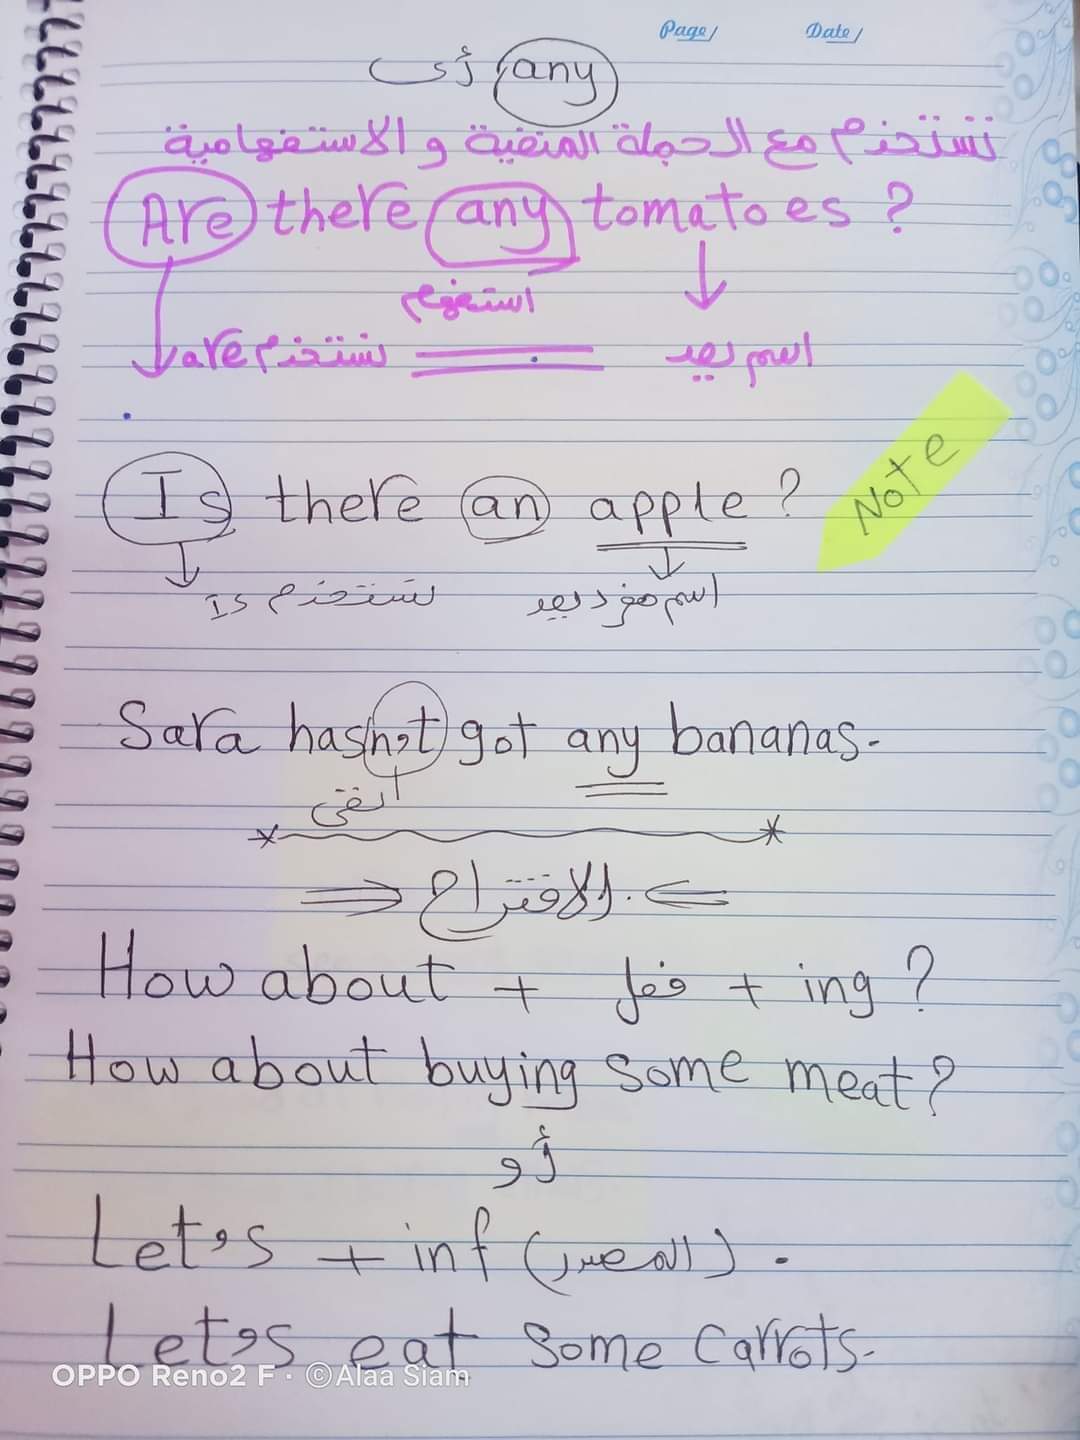 Page/ Date/
any أى
تستخدم مع الجملة المنفية و الاستفهامية
Are there any tomatoes ?
استفهام
are نستخدم اسم يعد
Note
Is there an apple ?
Is نستخدم اسم مفرد يعد
Sara hasn't got any bananas.
نفى
الاقتراح
How about + فعل + ing ?
How about buying some meat?
أو
Let's + inf (المصدر) .
Let's eat some carrots.
OPPO Reno2 F · ©Alaa Siam